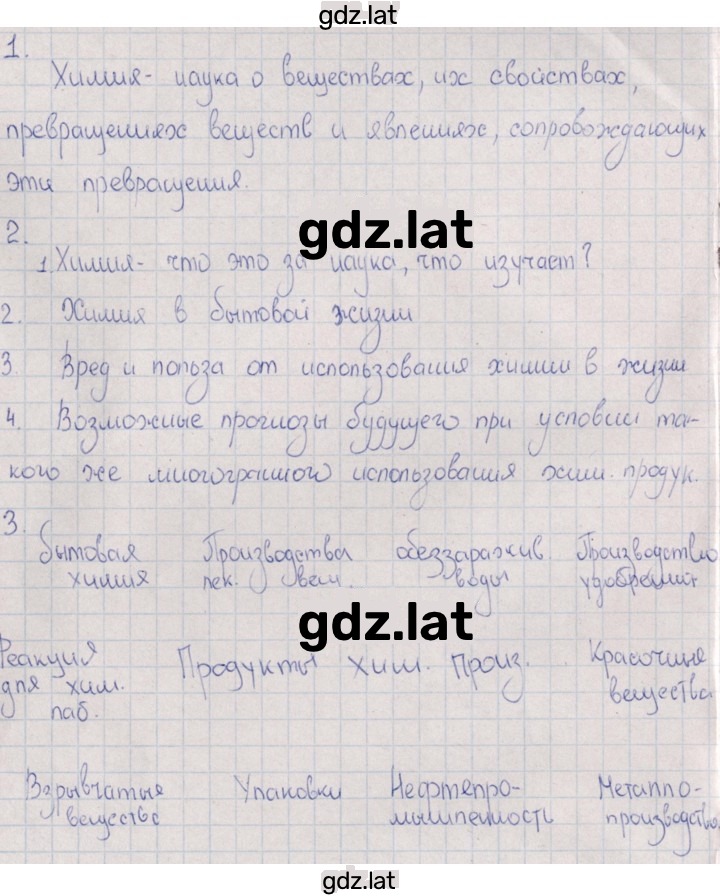 gdz.lat
1.
Химия - наука о веществах, их свойствах,
превращениях веществ и явлениях, сопровождающих
эти превращения.
gdz.lat
2.
1. Химия - что это за наука, что изучает?
2. Химия в бытовой жизни
3. Вред и польза от использования химии в жизни
4. Возможные прогнозы будущего при условии та-
кого же многогранного использования хим. продук.
3.
Бытовая Производства обеззаражив. Производство
химия лек. вещ. воды удобрений
gdz.lat
Реакция Продукты хим. произ. Красочные
для хим. вещества
лаб.
Взрывчатые Упаковки Нефтепро- Металло-
вещество мышленность производство
gdz.lat